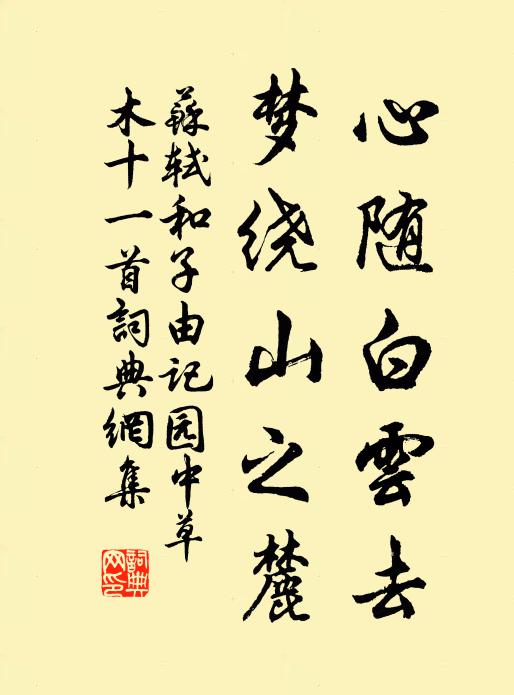 心随白雲去
梦绕山之麓
蘇轼和子由记园中草
木十一首詞典網集
詞典
网印